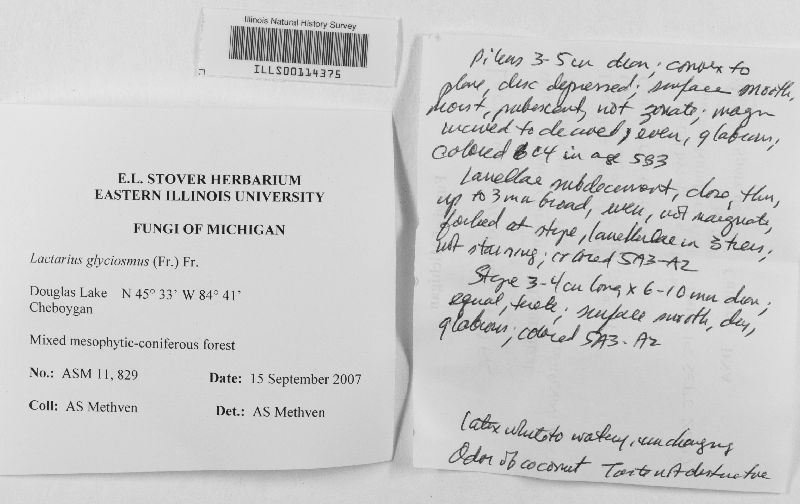 Illinois Natural History Survey
ILLS00114375
E.L. STOVER HERBARIUM
EASTERN ILLINOIS UNIVERSITY
FUNGI OF MICHIGAN
Lactarius glyciosmus (Fr.) Fr.
Douglas Lake N 45° 33' W 84° 41'
Cheboygan
Mixed mesophytic-coniferous forest
No.: ASM 11, 829 Date: 15 September 2007
Coll: AS Methven Det.: AS Methven
Pileus 3-5 cm diam; convex to
plane, disc depressed; surface smooth,
moist, pubescent, not zonate; margin
incurved to decurved, even, glabrous;
colored 6C4 in age 5B3
Lamellae subdecurrent, close, thin,
up to 3 mm broad, even, not marginate,
forked at stipe, lamellulae in 3 tiers;
not staining; colored 5A3-A2
Stipe 3-4 cm long x 6-10 mm diam;
equal, terete; surface smooth, dry,
glabrous; colored 5A3-A2
Latex white to watery, unchanging
Odor of coconut Taste not distinctive